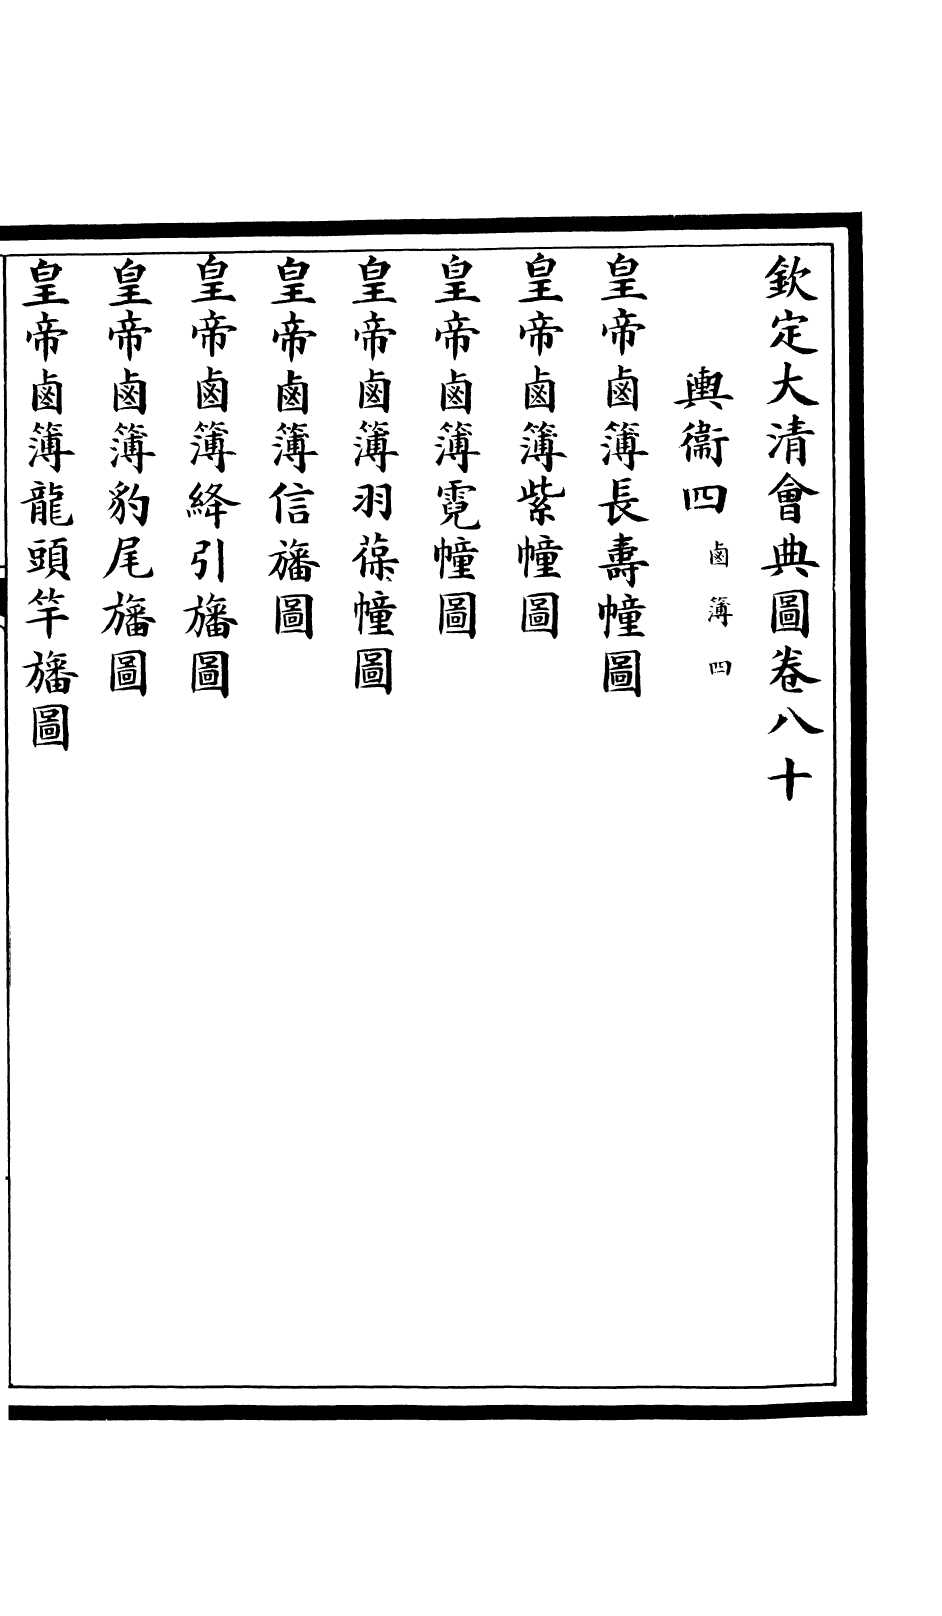 欽定大清會典圖卷八十
輿衞四 鹵簿四
皇帝鹵簿長壽幢圖
皇帝鹵簿紫幢圖
皇帝鹵簿霓幢圖
皇帝鹵簿羽葆幢圖
皇帝鹵簿信旛圖
皇帝鹵簿絳引旛圖
皇帝鹵簿豹尾旛圖
皇帝鹵簿龍頭竿旛圖